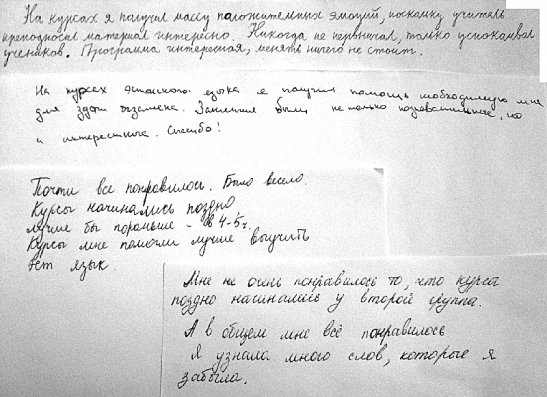 На курсах я получил массу положительных эмоций, поскольку учитель
преподносил материал интересно. Никогда не нервничал, только успокаивал
учеников. Программа интересная, менять ничего не стоит.
На курсах эстонского языка я получил помощь необходимую мне
для здачи экзамена. Занятия были не только познавательные, но
и интересные. Спасибо!
Почти все понравилось. Было весело.
Курсы начинались поздно
лучше бы пораньше - в 4-5 ч.
Курсы мне помогли лучше выучить
эст язык.
Мне не очень понравилось то, что курсы
поздно начинались у второй группы.
А в общем мне всё понравилось
Я узнала много слов, которые я
забыла.